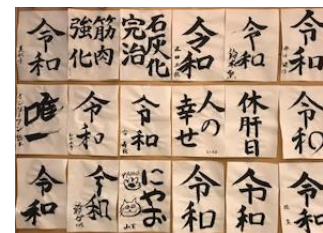 令和
筋肉
強化
石灰化
完治
令和
令和
令和
唯一
令和
令和
人の
幸せ
休肝日
令和
令和
令和
にゃお
令和
令和
令和